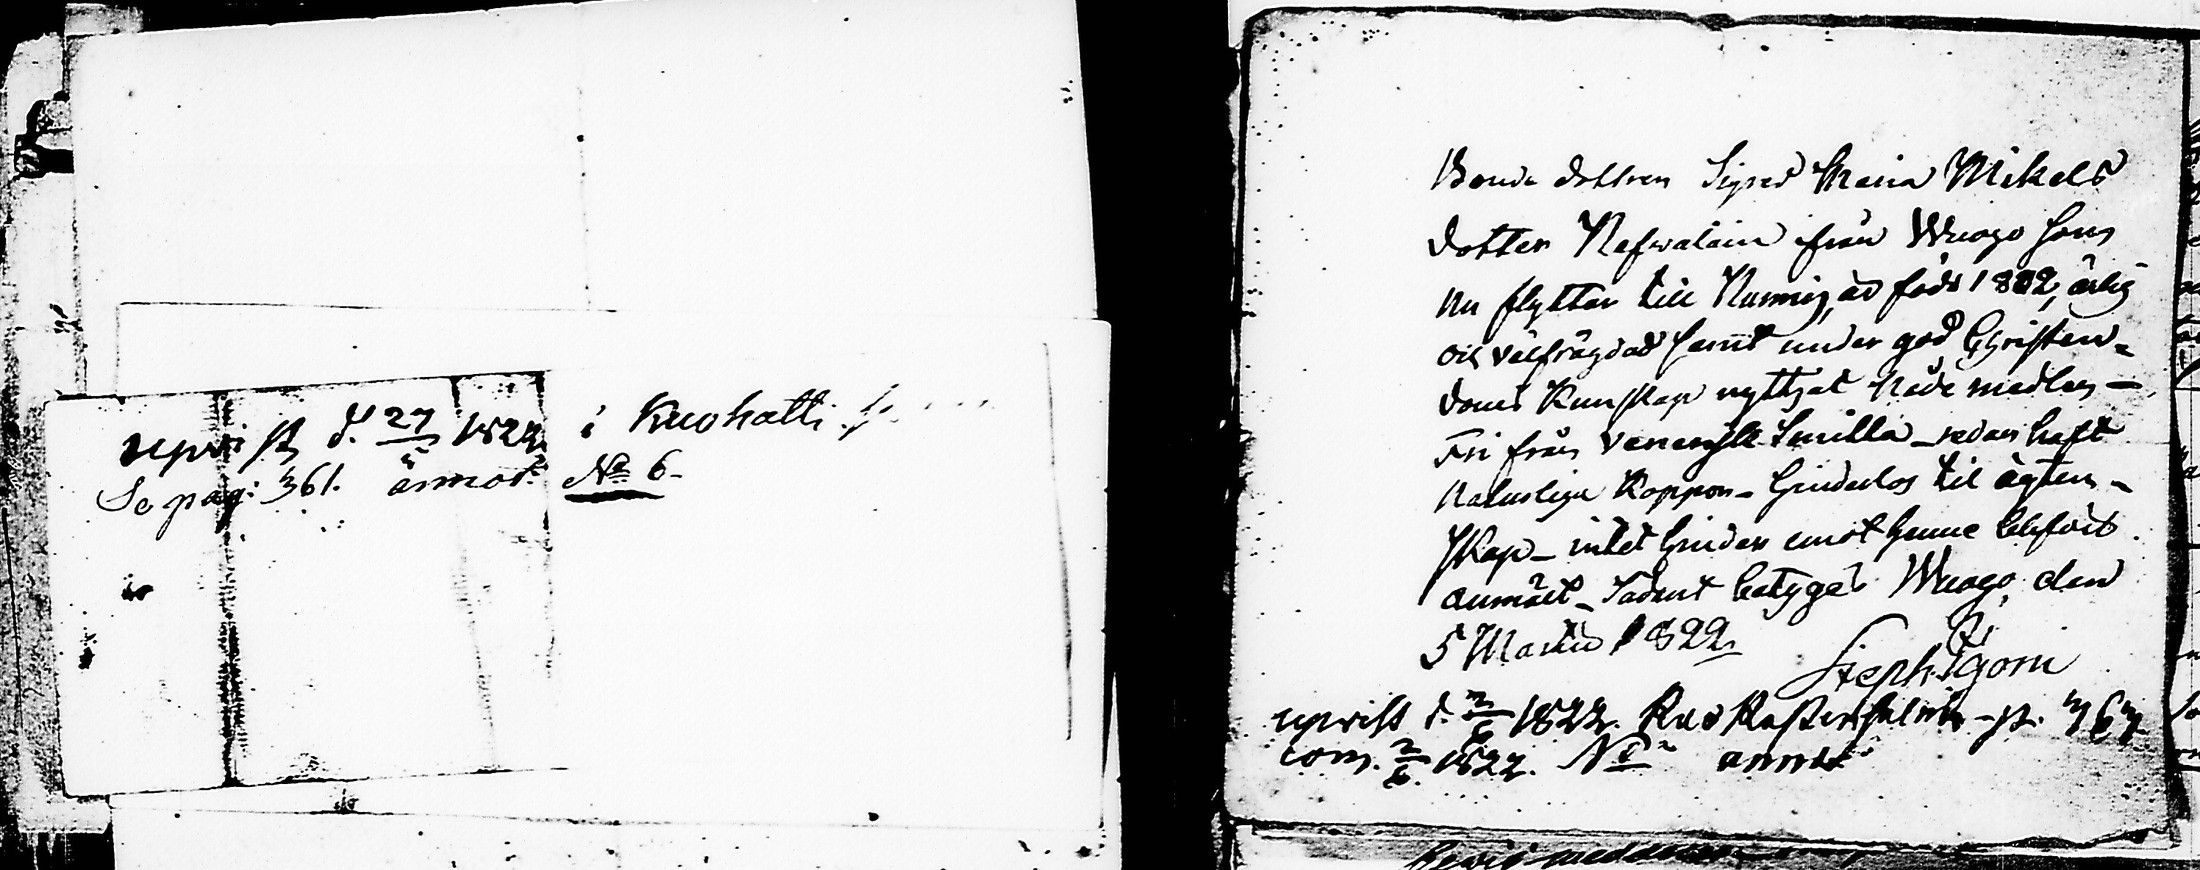 upvist d. 27 1822 i Kuohatti
Se pag: 361. anmot: No 6-
Bonde dottren Sigred Maria Mikels
dotter Nefvalain ifrån Wuogo som
nu flytter till Nurmis, är född 1802, ärlig
och välfrägdad samt under god Christen-
doms Kunskap nyttjat Nåde medlen -
Fri från venerisk Smitta - redan haft
naturliga Koppor - hinderlös til ägten-
skap - intet hinder emot henne blifvit
anmält - Sådant betygas Wuogo den
5 Martii 1822
upvist d. 2/6 1822. p. 367
com. 2/6 1822. No anmot